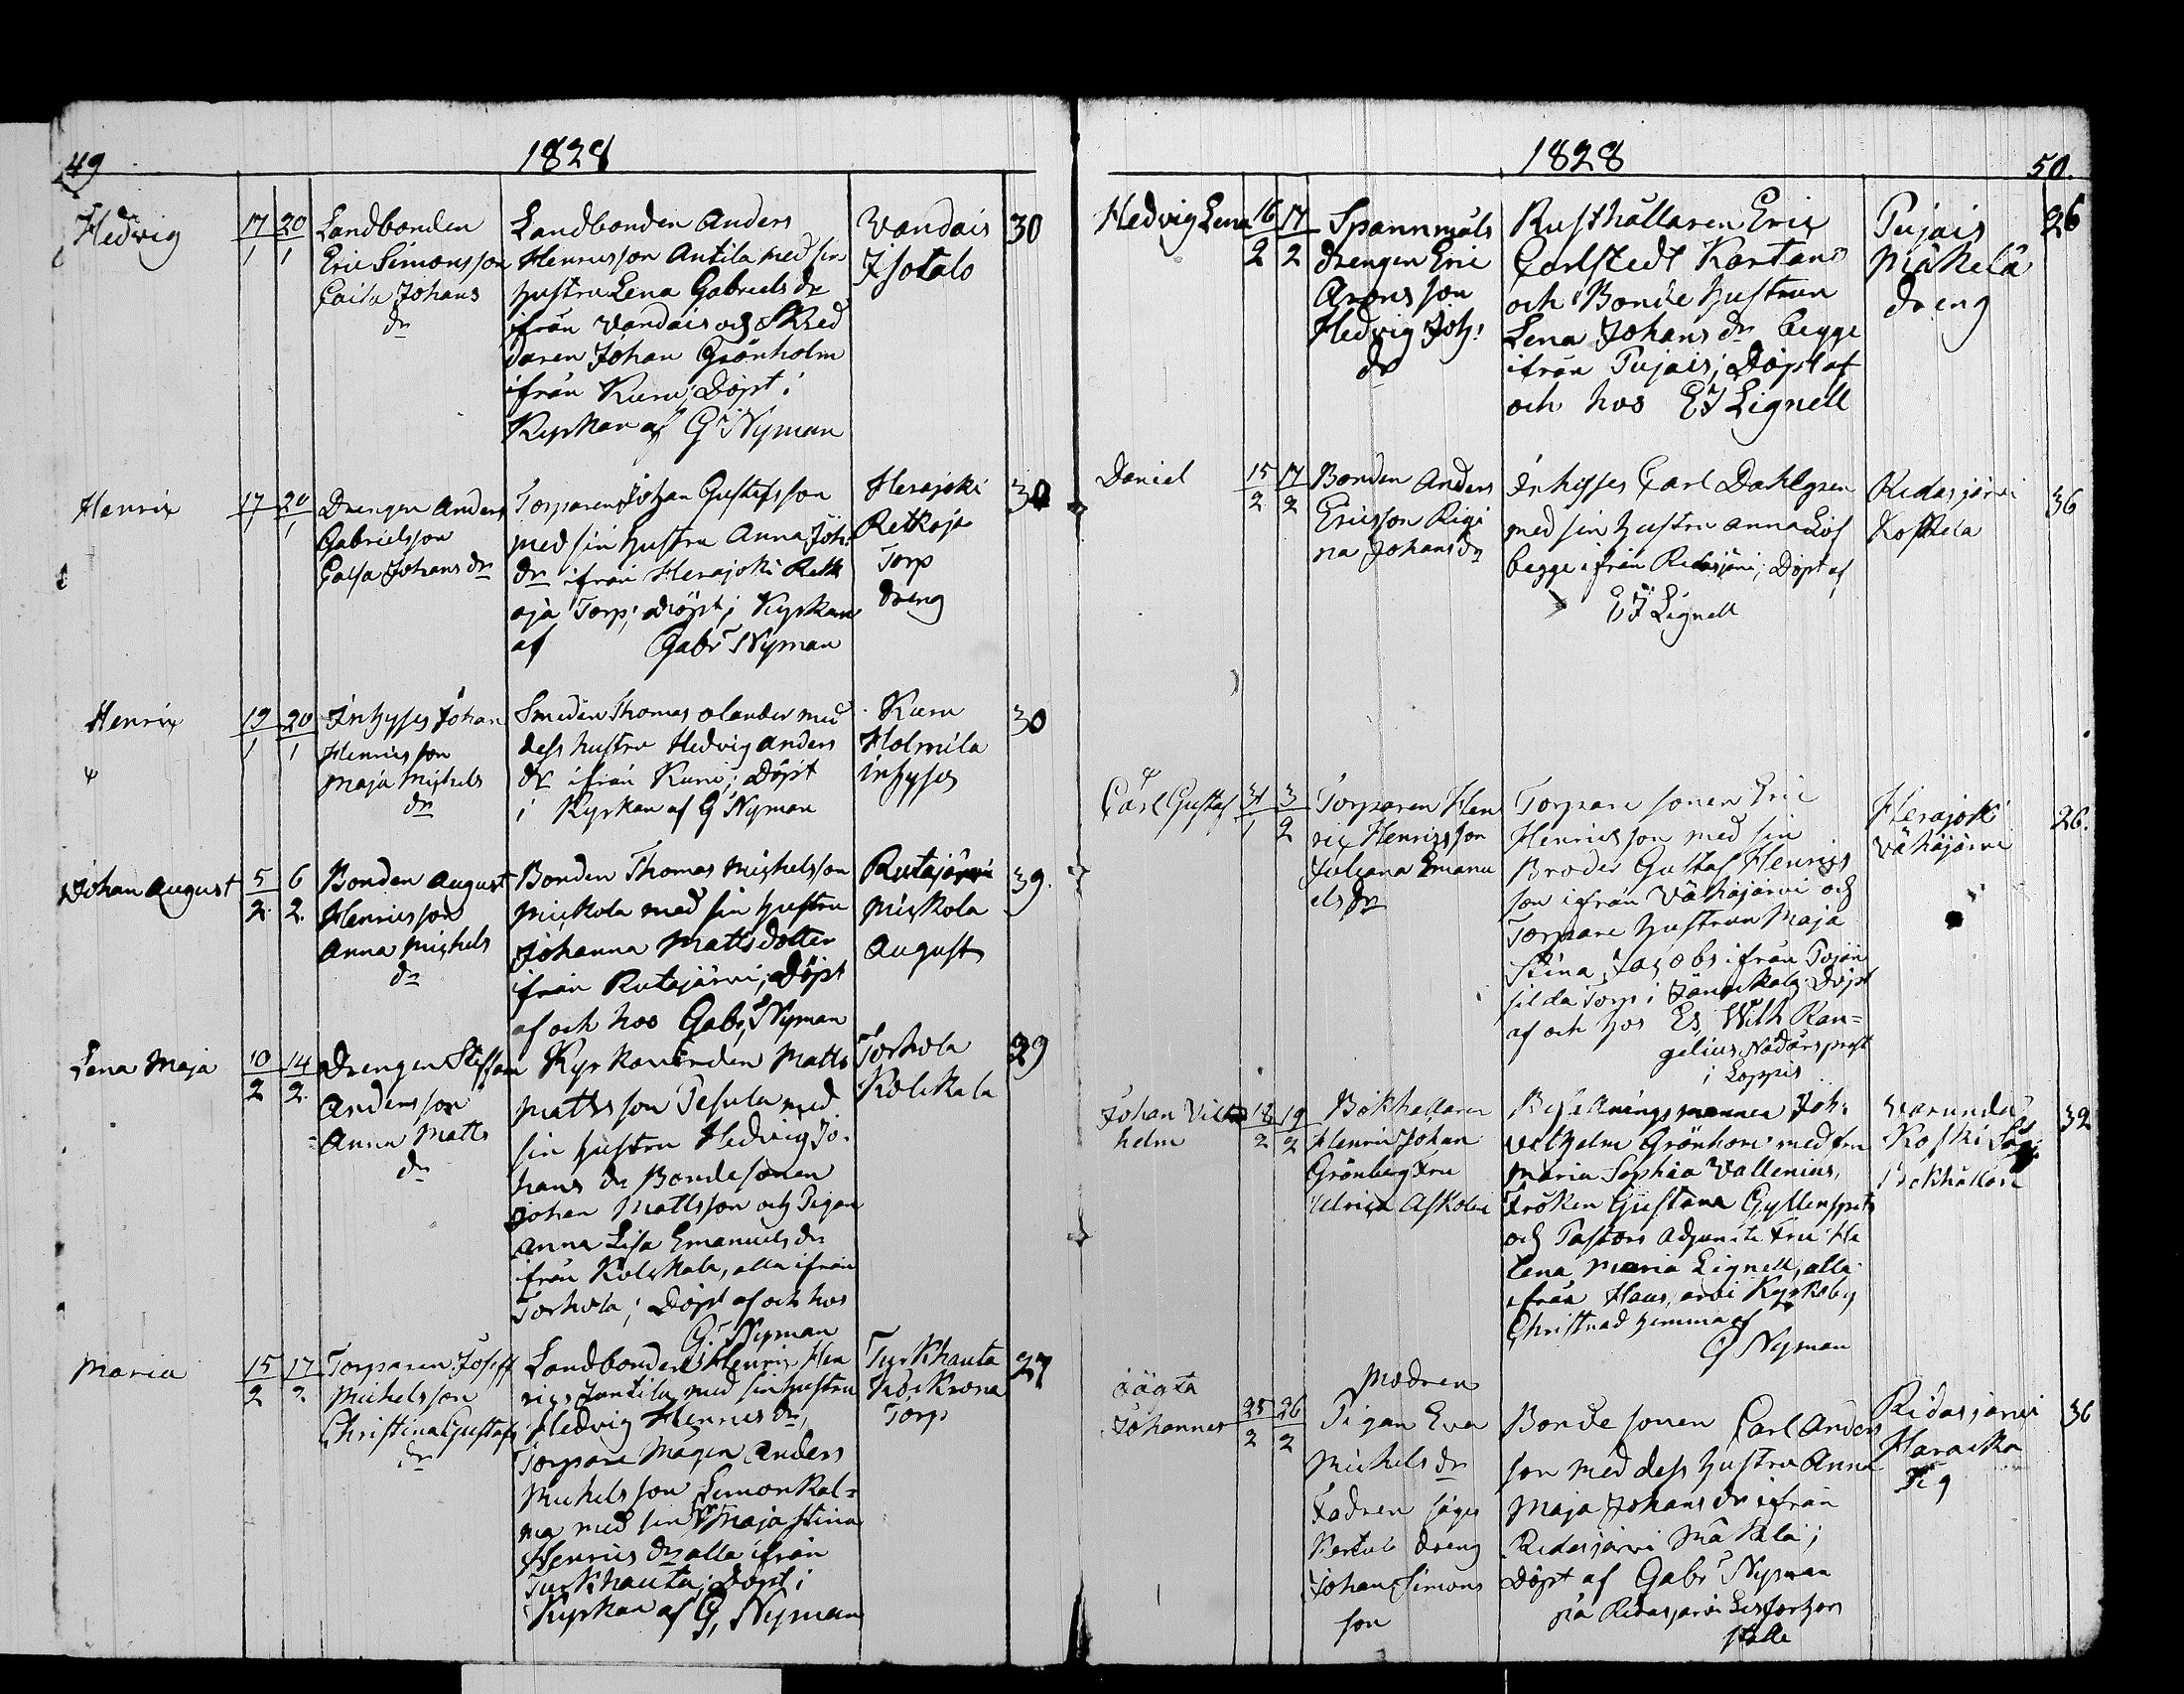 49
1828
Hedvig 17/1 20/1
Landbonden
Eric Simonsson
Caisa Johans
dr
Landbonden Anders
Henricsson Antila med sin
hustru Lena Gabriels dr
ifrån Vandais och Skred
daren Johan Grönholm
ifrån Kuru; Döpt i
Kyrkan af G Nyman
Vandais
Isotalo
30
Henric 17/1 20/1
Drengen Anders
Gabrielsson
Caisa Johans dr
Torparen Johan Gustafsson
med sin hustru Anna Joh:
dr ifrån Herajoki Retk
oja Torp; döpt i Kyrkan
af Gabr Nyman
Herajoki
Retkoja
Torp
dreng
30
Henric 19/1 20/1
Inhyses Johan
Henricsson
Maja Michels
dr
Smeden Thomas Olander med
dess hustru Hedvig Anders
dr ifrån Kuru; Döpt
i Kyrkan af G Nyman
Kuru
Holmila
inhyses
30
Johan August 5/2 6/2
Bonden August
Henricsson
Anna Michels
dr
Bonden Thomas Michelsson
Mickola med sin hustru
Johanna Mattsdotter
ifrån Rutajärvi; Döpt
af och hos Gabr Nyman
Rutajärvi
Mickola
August
39.
Lena Maja 10/2 14/2
Drengen Steffan
Andersson
Anna Matts
dr
Kyrkovärden Matts
Mattsson Pesula med
sin hustru Hedvig Jo-
hans dr Bondesonen
Johan Mattsson och Pigan
Anna Lisa Emanuels dr
ifrån Kolckala, alla ifrån
Torhola; Döpt af och hos
G. Nyman
Torhola
Kolckala
29
Maria 15/2 17/2
Torparen Joseff
Michelsson
Christina Gustafs
dr
Landbonden Henric Hen
rics Jantila med sin hustru
Hedvig Henrics dr,
Torpare Mågen Anders
Michelsson Simon Kal-
ma med sin Maja Stina
Henrics dr alla ifrån
Turkhauta; Döpt i
Kyrkan af G, Nyman
Turkhauta
Torp
27
1828
50.
Hedvig Lena 16/2 17/2
Spannmåls
drengen Eric
Aronsson
Hedvig Joh:
dr
Rusthållaren Eric
Carlstedt Kartano
och Bonde hustrun
Lena Johans dr begge
ifrån Pujais; Döpt af
och hos EJ Lignell
Pujais
Mäkelä
dreng
26
Daniel 15/2 17/2
Bonden Anders
Ericsson Rigi
na Johans dr
Inhyses Carl Dahlgren
med sin hustru Anna Löf
begge ifrån Ridasjärvi; Döpt af
EJ Lignell
Ridasjärvi
Koskela
36
Carl Gustaf 31/1 3/2
Torparen Hen
ric Henricsson
Juliana Emanu
els dr
Torpare sonen Eric
Henricsson med sin
Broder Gustaf Henrics
son ifrån Vähäjärvi och
Torpare hustrun Maja
Stina Jacobs ifrån
silda Torp i Janackala; Döpt
af och hos Es Wilh Ran=
gelius Nådårs prest
i Loppis
Herajoki
Vähäjärvi
26.
Johan Vil
helm 18/2 19/2
Bokhållaren
Henric Johan
Grönberg Fru
Ulrica Askolin
Befallningsmannen Joh:
Vilhelm Grönhom med fru
Maria Sophia Vallenius,
Fröken Gustava Gyllenspets
och Pastors Adjunckt Fru He
lena Maria Lignell, alla
ifrån Hausjärvi Kyrkoby
Christnad hemma af
G Nyman
Koski
Bokhållare
32
oägta
Johannes 25/2 26/2
Modren
Pigan Eva
Michels dr
Fadren säges
dreng
Johan Simons
son
Bonde sonen Carl Anders
son med dess hustru Anna
Maja Johans dr ifrån
Ridasjärvi Mäkelä;
Döpt af Gabr Nyman
på Ridasjärvi
ställe
Ridasjärvi
Haracka
Pig
36